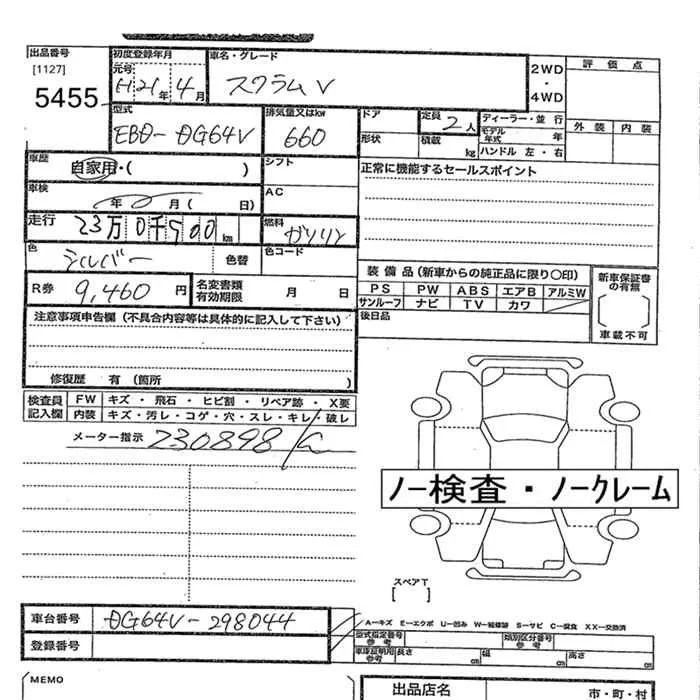 出品番号 初度登録年月 車名・グレード 評価点
[1127] 元号 H21年 4月 スクラムV 2WD・4WD
5455 外装 内装
型式 排気量又はkw ドア 定員 2人 ディーラー・並行
EBD-DG64V 660 形状 積載 kg モデル年式 年
ハンドル 左・右
車歴 自家用・( ) シフト 正常に機能するセールスポイント
車検 年 月( 日) AC
走行 23万0千500km 燃料 ガソリン
色 シルバー 色替 色コード
装備品(新車からの純正品に限り○印) 新車保証書の有無
R券 9,460円 名変書類有効期限 月 日
PS PW ABS エアB アルミW
サンルーフ ナビ TV カワ
車載不可
注意事項申告欄(不具合内容等は具体的に記入して下さい) 後日品
修復歴 有(箇所 )
検査員記入欄 FW キズ・飛石・ヒビ割・リペア跡・X要
内装 キズ・汚レ・コゲ・穴・スレ・キレ・破レ
メーター指示 230898
ノー検査・ノークレーム
スペアT
[ ]
車台番号 DG64V-298044
A-キズ E-エクボ U-凹み W-補修跡 S-サビ C-腐食 XX-交換済
登録番号 型式指定番号参考 類別区分番号参考
車庫証明用参考 長さ cm 幅 cm 高さ cm
MEMO 出品店名 市・町・村